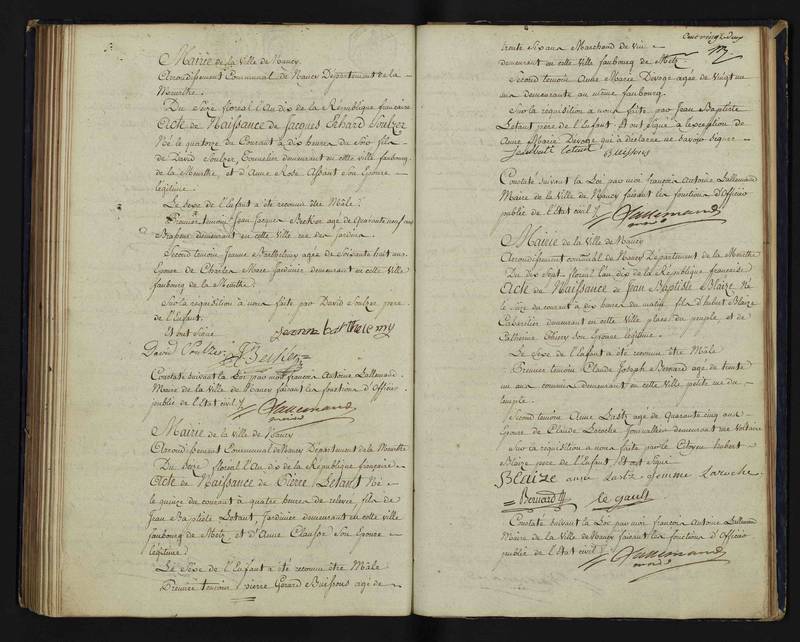 Mairie de la Ville de Nancy.
Arrondissement Communal de Nancy Departement de la
Meurthe.
Du Seize floreal l'An dix de la Republique française
Acte de Naissance de Jacques Erhard Soulzer
Né le quatorze du Courant à dix heures du Soir fils
de David Soulzer, Tonnelier demeurant en cette ville faubourg
de la Meurthe, et d'Anne Rose Son Epouse
légitime.
Le Sexe de l'Enfant a été reconnu être Mâle.
Premier temoin Jean Jacques Beeker agé de Quarante neuf ans
Brasseur demeurant en cette Ville rue des jardins.
Second temoin Jeanne Barthelemy agée de Soixante huit ans
Epouse de Charles Jardinier demeurant en cette Ville
faubourg de la Meurthe.
Sur la requisition à nous faite par David Soulzer pere
de l'Enfant.
Et ont Signé
Jeanne barthelemy
David Soulzer JJ Beeker
Constaté Suivant la Loi, par moi françois Antoine Lallemand
Maire de la Ville de Nancy faisant les fonctions d'Officier
publie de l'Etat civil.
Lallemand
maire
Mairie de la Ville de Nancy
Arrondissement Communal de Nancy Departement de la Meurthe
Du Seize floreal l'An dix de la Republique française
Acte de Naissance de Pierre Letault Né
le quinze du courant à quatre heures de relevée, fils de
Jean Baptiste Letaut, Jardinier demeurant en cette ville
faubourg de Metz et d'Anne Son Epouse
légitime.
Le Sexe de l'Enfant a été reconnu être Mâle
Premier temoin pierre Gerard Buissons agé de
Cent vingt deux
trente Six ans Marchand de Vin
demeurant en cette Ville faubourg de Metz
Second temoin Anne Marie agée de Vingt un
ans demeurante au même faubourg.
Sur la requisition a nous faite par Jean Baptiste
Letaut pere de l'Enfant Et ont Signé a l'exception de
Anne Marie qui a déclaré ne Savoir Signer
Letaut Buissons
Constaté Suivant la Loi par moi françois Antoine Lallemand
Maire de la Ville de Nancy faisant les fonctions d'Officier
publie de l'Etat Civil.
Lallemand
maire
Mairie de la Ville de Nancy
Arrondissement communal de Nancy Departement de la Meurthe
Du dix Sept floreal l'an dix de la Republique française
Acte de Naissance de Jean Baptiste Blaize Né
le Seize du courant à dix heures du matin fils d'hubert Blaize
Cabaretier demeurant en cette Ville place du peuple, et de
Catherine Thiery Son Epouse légitime.
Le Sexe de l'Enfant a été reconnu être Mâle
Premier temoin Claude Joseph Bernard agé de trente
un ans commis demeurant en cette Ville petite rue du
temple.
Second temoin Anne Lartz agé de Quarante cinq ans
Epouse de Claude Laroche Journalier demeurant rue Voltaire
Sur la requisition a nous faite par le Citoyen hubert
Blaize pere de l'Enfant, Et ont Signé
Blaize anne Lartz femme laroche
Bernard le gault
Constaté Suivant la Loi par moi françois Antoine Lallemand
Maire de la Ville de Nancy faisant les fonctions d'Officier
publie de l'Etat civil
Lallemand
maire